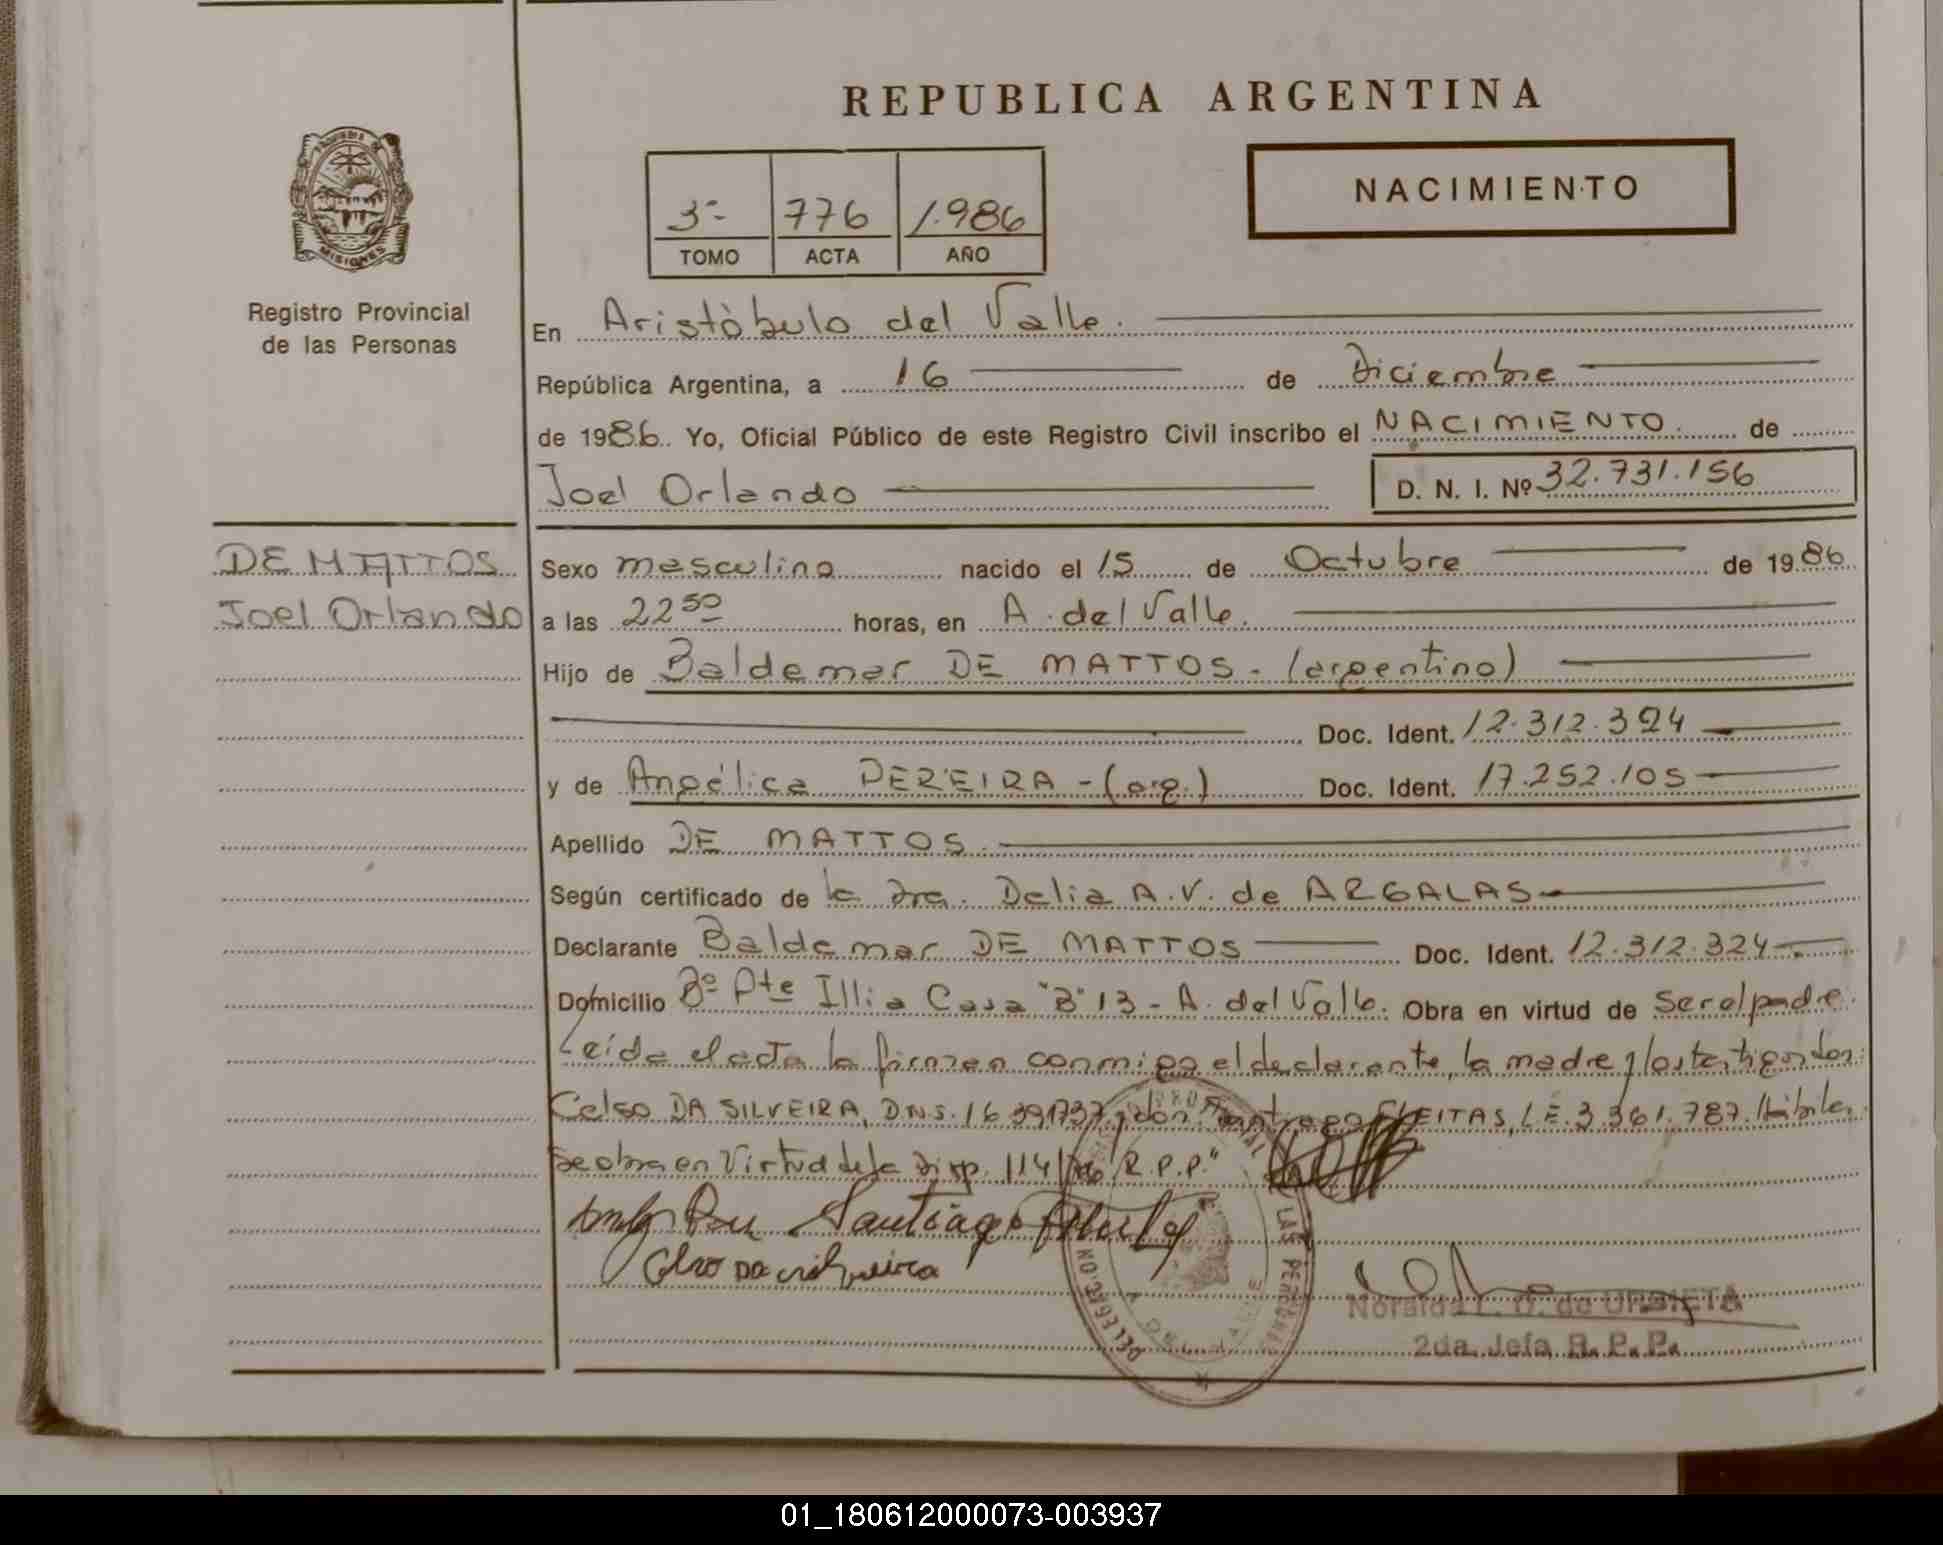 REPUBLICA ARGENTINA
PROVINCIA DE
MISIONES
Registro Provincial
de las Personas
3º- 776 1.986
TOMO ACTA AÑO
NACIMIENTO
En Aristòbulo del Valle.
República Argentina, a 16 de Diciembre
de 1986. Yo, Oficial Público de este Registro Civil inscribo el NACIMIENTO. de
Joel Orlando D. N. I. Nº 32.731.156
DE MATTOS
Joel Orlando
Sexo masculino nacido el 15 de Octubre de 1986
a las 22 50 horas, en A. del Valle.
Hijo de Baldemar DE MATTOS - (argentino)
Doc. Ident. 12.312.324
y de Angélica PEREIRA - (arg.) Doc. Ident. 17.252.105
Apellido DE MATTOS.
Según certificado de la Dra. Delia A.V. de ARGALAS
Declarante Baldemar DE MATTOS Doc. Ident. 12.312.324
Domicilio Bº Pte Illia Casa "B" 13 - A. del Valle. Obra en virtud de ser el padre.
Leída el acta la firman conmigo el declarante, la madre y los testigos don:
Celso DA SILVEIRA, D.N.I. 16.391737 y don Santiago FLEITAS, L.E. 3.361.787. Hábiles
Se obra en Virtud de la Disp. 114/86 "R.P.P."
Santiago
Celso DA silveira
DELEGACION
LAS PERSONAS
A. DEL VALLE
Noralda L. D. de URBIETA
2da. Jefa R. P. P.
01_180612000073-003937